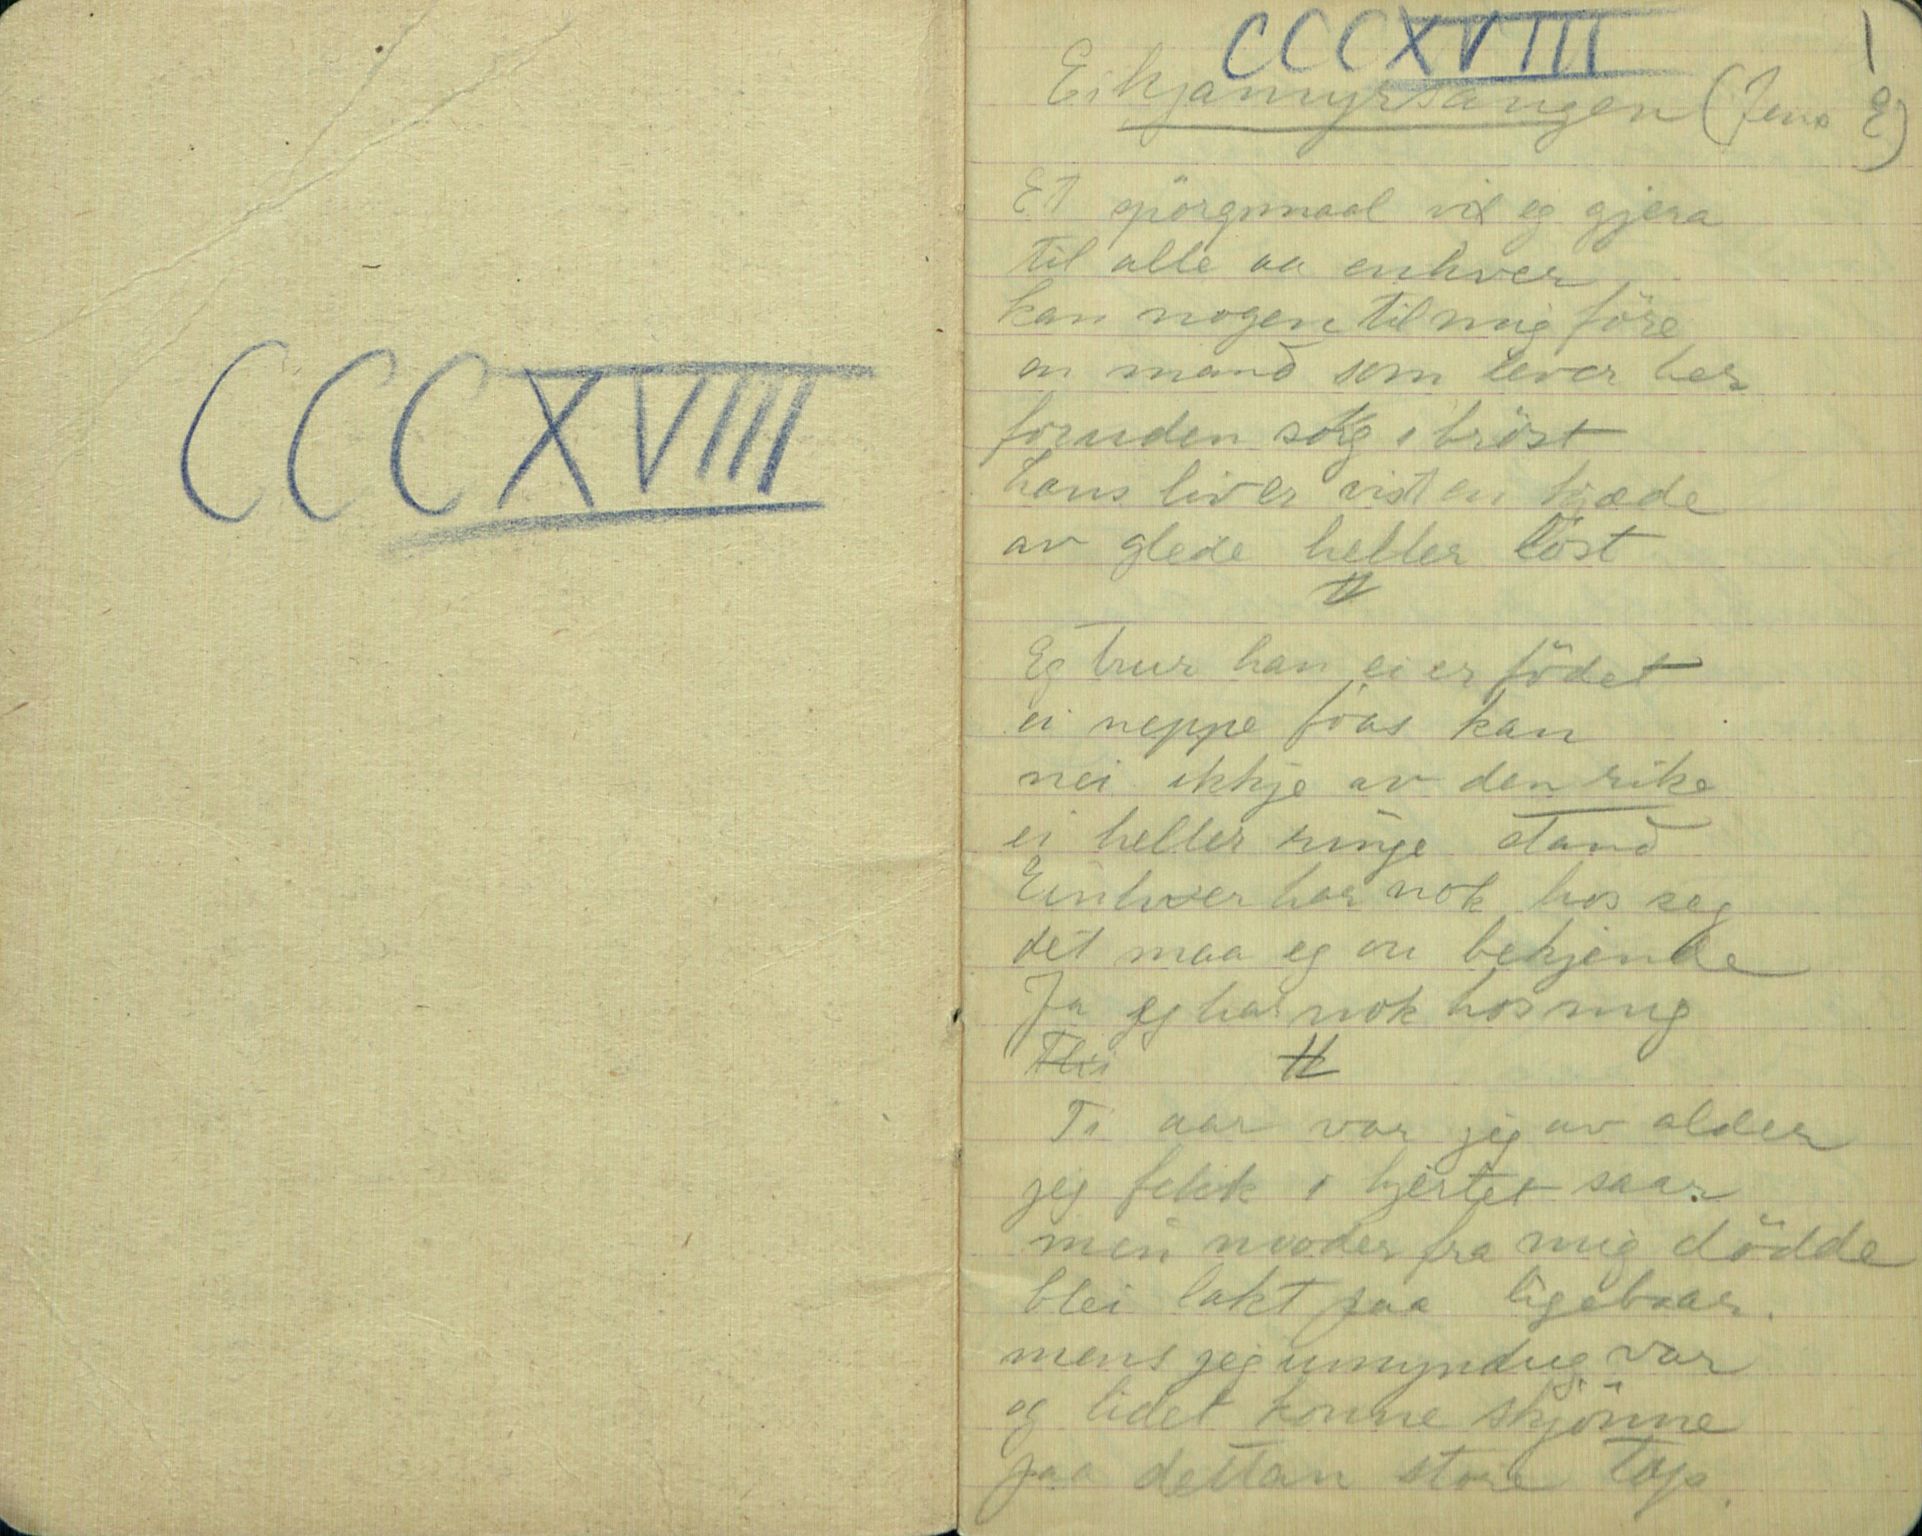 CCCXVIII
CCCXVIII
1
Eikjamyrsangen (Jens E)
Et spörgsmaal vil eg gjera
til alle aa enhver
kan nogen til mig före
en mand som lever her
foruden sorg i bröst
hans liv er vist en kjæde
av glede heller löst
Eg trur han ei er födet
ei neppe föas kan
nei ikkje av den rike
ei heller ringe stand
Einhver har nok hos seg
det maa eg en bekjende
Ja eg har nok hos mig
Ti aar var jeg av alder
jeg fekk i hjertet saar
min moder fra mig dödde
blei lakt paa ligebaar.
mens jeg umyndig var
og lidet konne skjönne
paa dettan store tap.